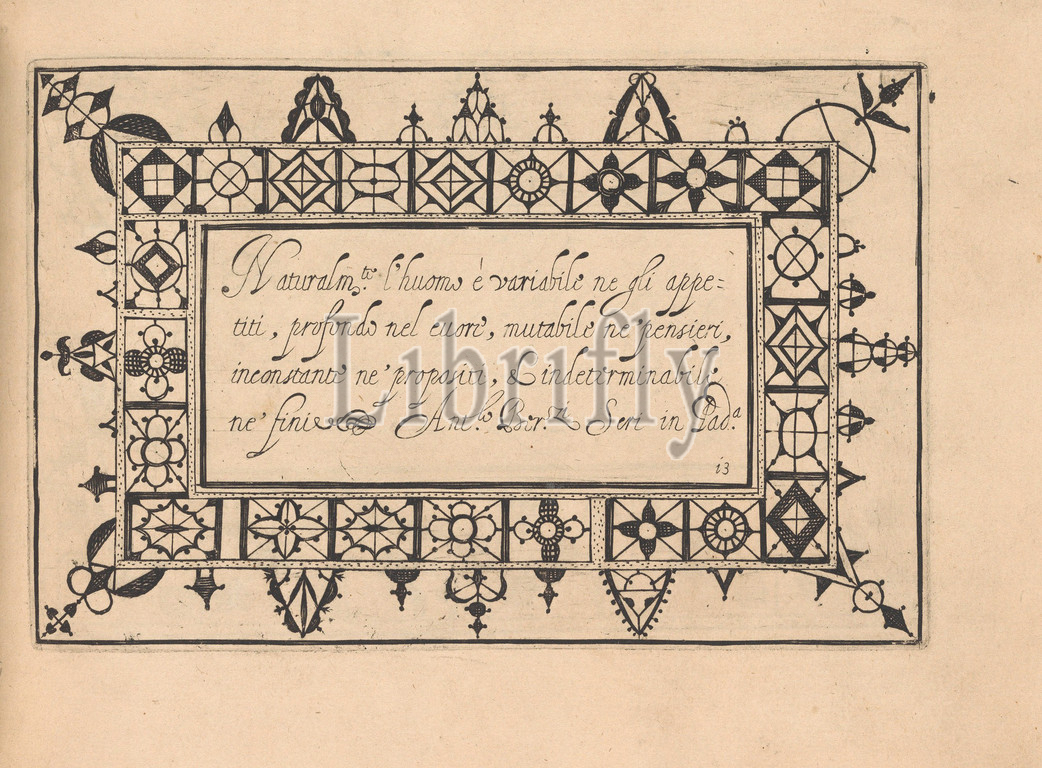 Naturalm.te l'huomo è variabile ne gli appe=
titi, profondo nel cuore, mutabile ne pensieri,
inconstante ne propositi, & indeterminabile
ne fini Ant.o Ber.zi Scri in Pad.a
13
Librifly